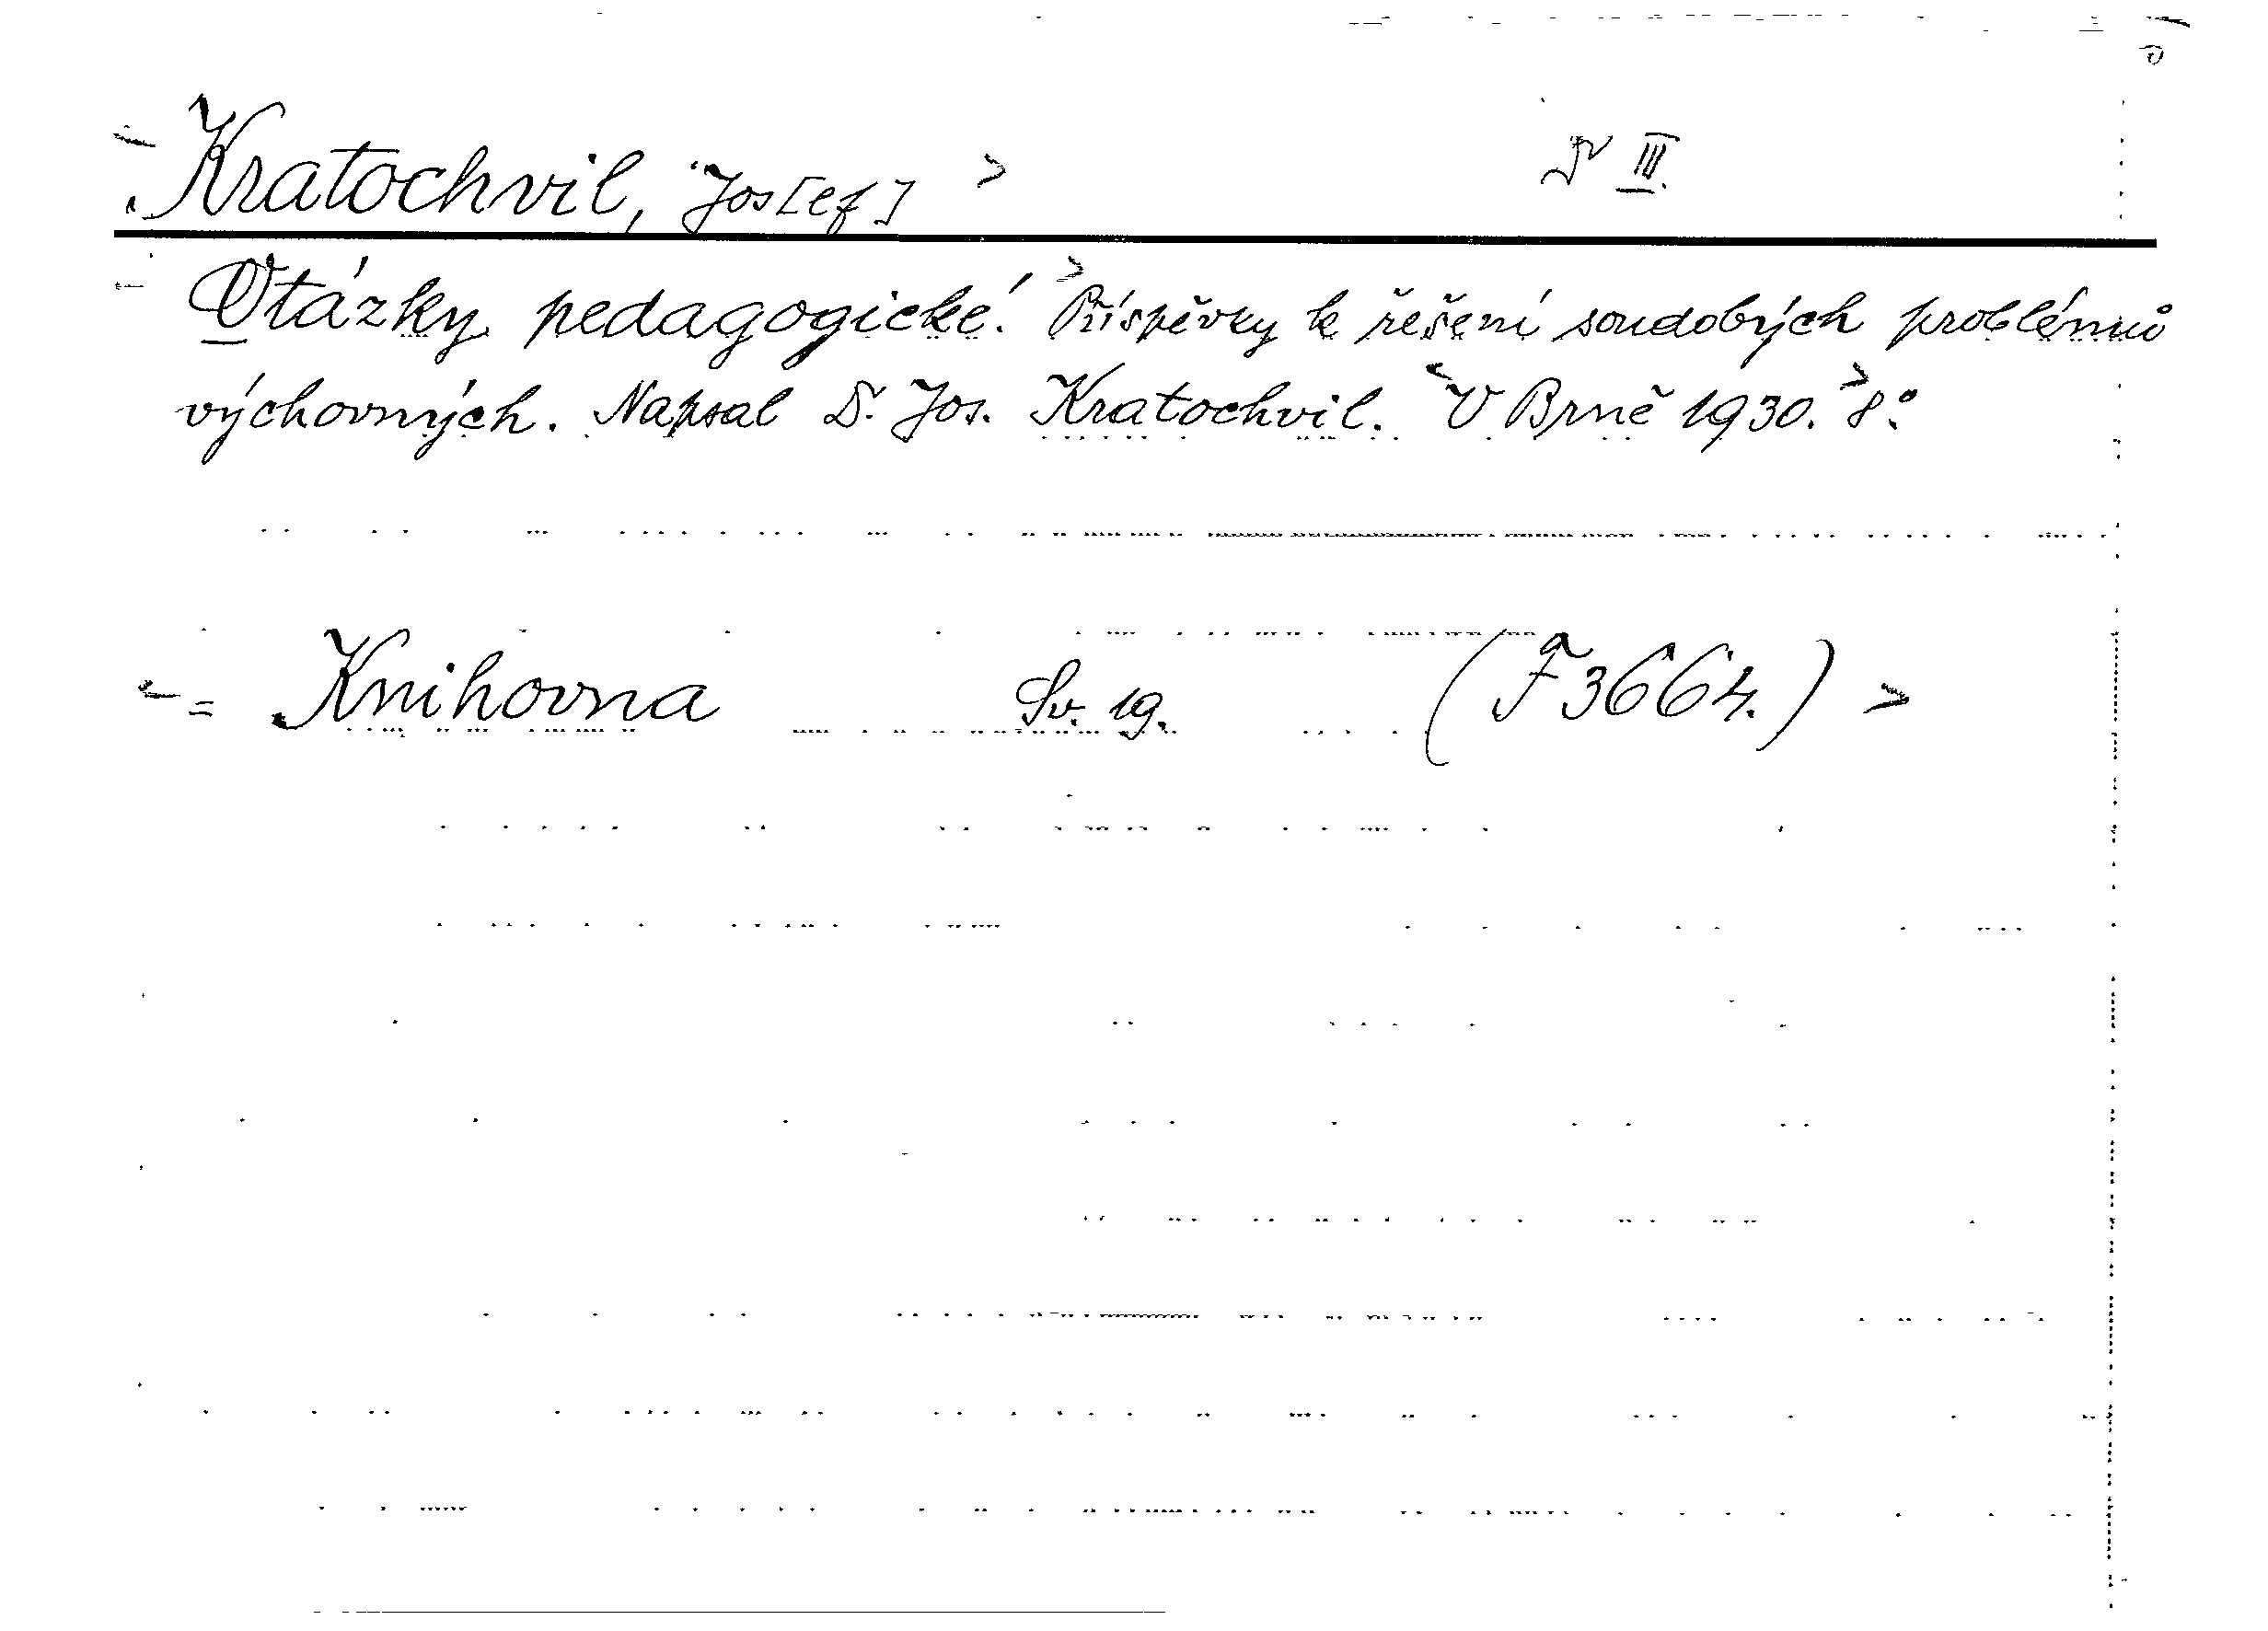 Kratochvil, Jos[ef]
III.
Otázky pedagogické. Příspěvky k řešení soudobých problémů
výchovných. Napsal D. Jos. Kratochvil. V Brně 1930. 8°.
= Knihovna Sv. 19. (F 3664.)